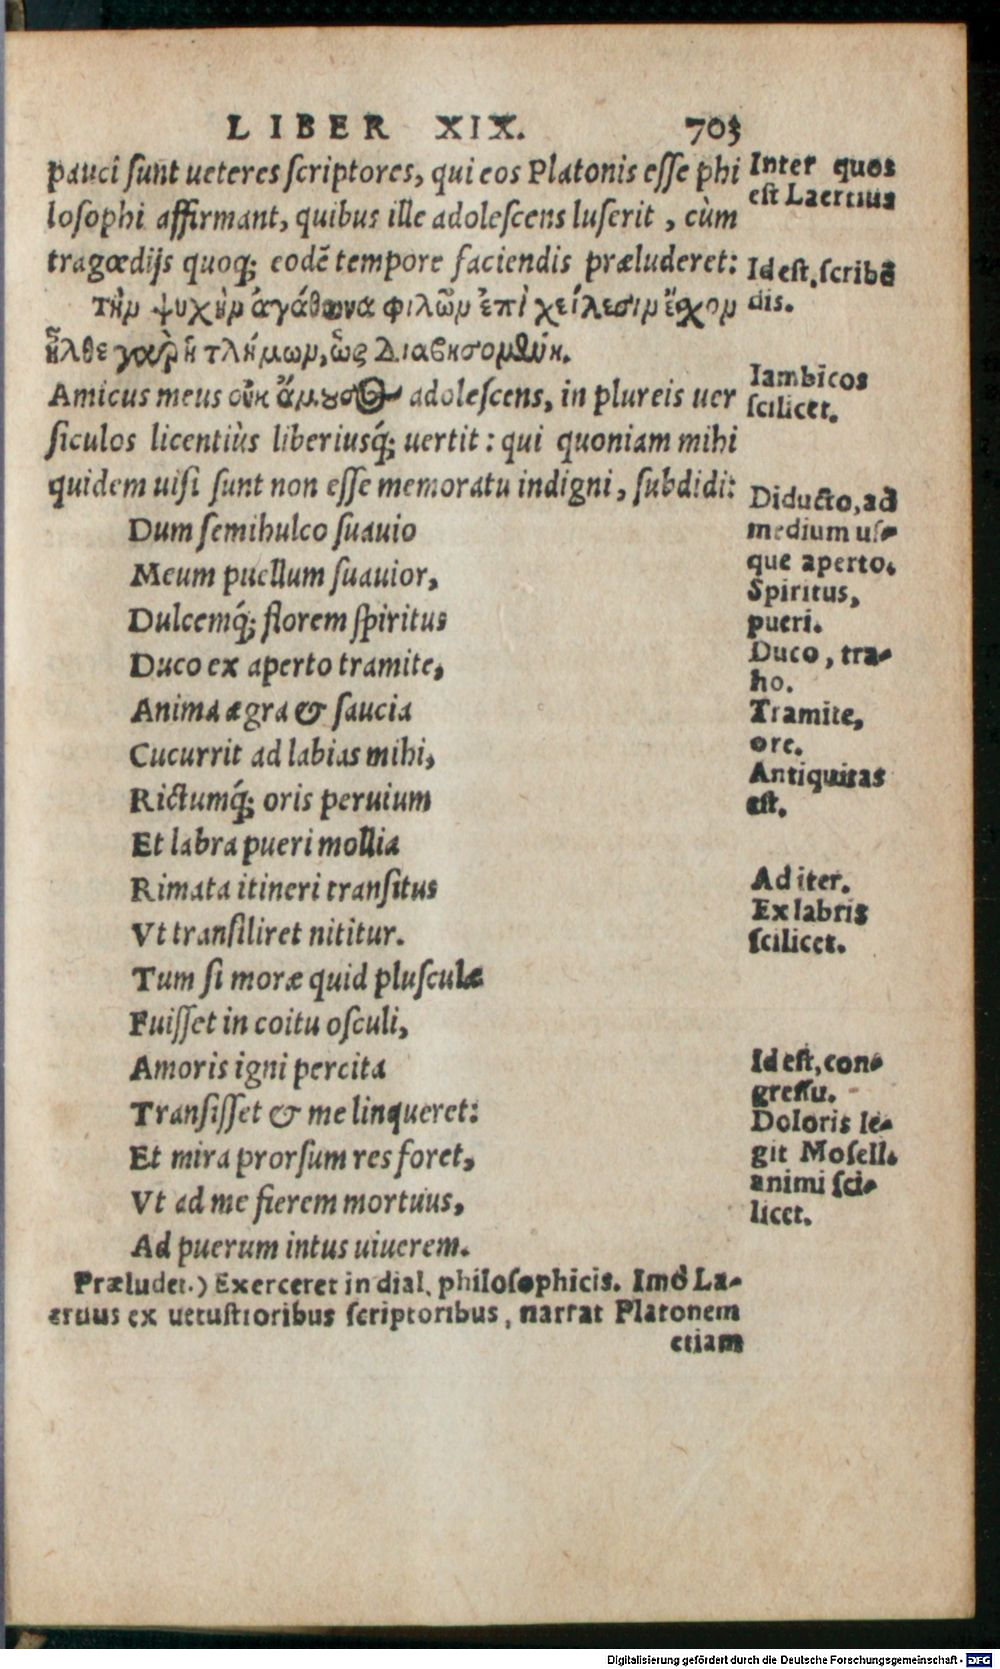 LIBER XIX. 703
pauci ſunt ueteres ſcriptores, qui eos Platonis eſſe phi
loſophi affirmant, quibus ille adoleſcens luſerit, cùm
tragœdijs quoq; eodē tempore faciendis præluderet:
τὴν ψυχὴν ἀγάθωνα φιλῶν ἐπὶ χείλεσιν ἔχον
ἦλθε γαρ̀ ἡ τλήμων, ὡς διαβησομένη.
Amicus meus οὐκ ἄμουσος adoleſcens, in plureis uer
ſiculos licentiùs liberiusq́; uertit: qui quoniam mihi
quidem uiſi ſunt non eſſe memoratu indigni, ſubdidi:
Dum ſemihulco ſuauio
Meum puellum ſuauior,
Dulcemq́; florem ſpiritus
Duco ex aperto tramite,
Anima ægra & ſaucia
Cucurrit ad labias mihi,
Rictumq́; oris peruium
Et labra pueri mollia
Rimata itineri tranſitus
Vt tranſiliret nititur.
Tum ſi moræ quid pluſculæ
Fuiſſet in coitu oſculi,
Amoris igni percita
Tranſiſſet & me linqueret:
Et mira prorſum res foret,
Vt ad me fierem mortuus,
Ad puerum intus uiuerem.
Inter quos
eſt Laertius
Id eſt, ſcribē
dis.
Iambicos
ſcilicet.
Diducto, ad
medium uſ-
que aperto.
Spiritus,
pueri.
Duco, tra-
ho.
Tramite,
ore.
Antiquitas
eſt.
Ad iter.
Ex labris
ſcilicet.
Id eſt, con-
greſſu.
Doloris le-
git Moſell.
animi ſci-
licet.
Præludet.) Exerceret in dial. philoſophicis. Imò La-
ertius ex uetuſtioribus ſcriptoribus, narrat Platonem
etiam
Digitalisierung gefördert durch die Deutsche Forschungsgemeinschaft - DFG